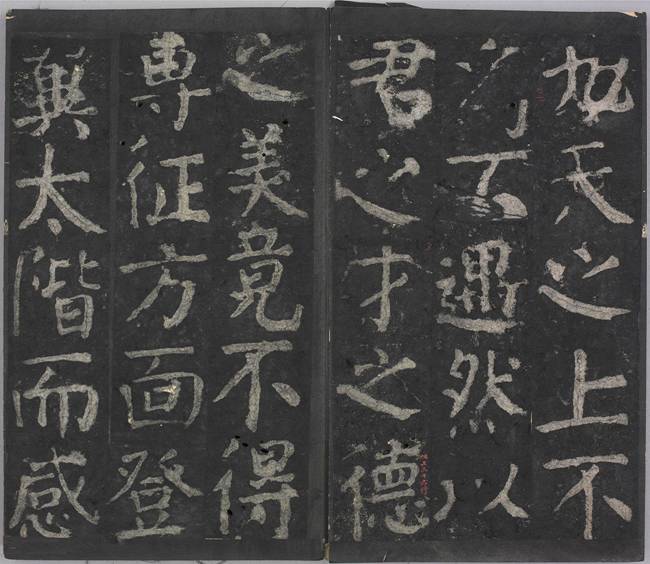 天之上不
不遇然以
君之才之德
之美竟不得
專征方面登
翼太階而感